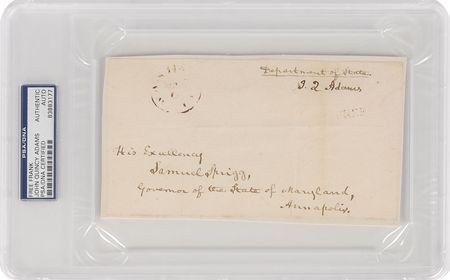 PSA/DNA
FREE FRANK
JOHN QUINCY ADAMS
PSA/DNA CERTIFIED
AUTHENTIC
AUTO
83893177
Department of State
J. Q Adams
FREE
His Excellency
Samuel Sprigg,
Governor of the State of Maryland,
Annapolis.